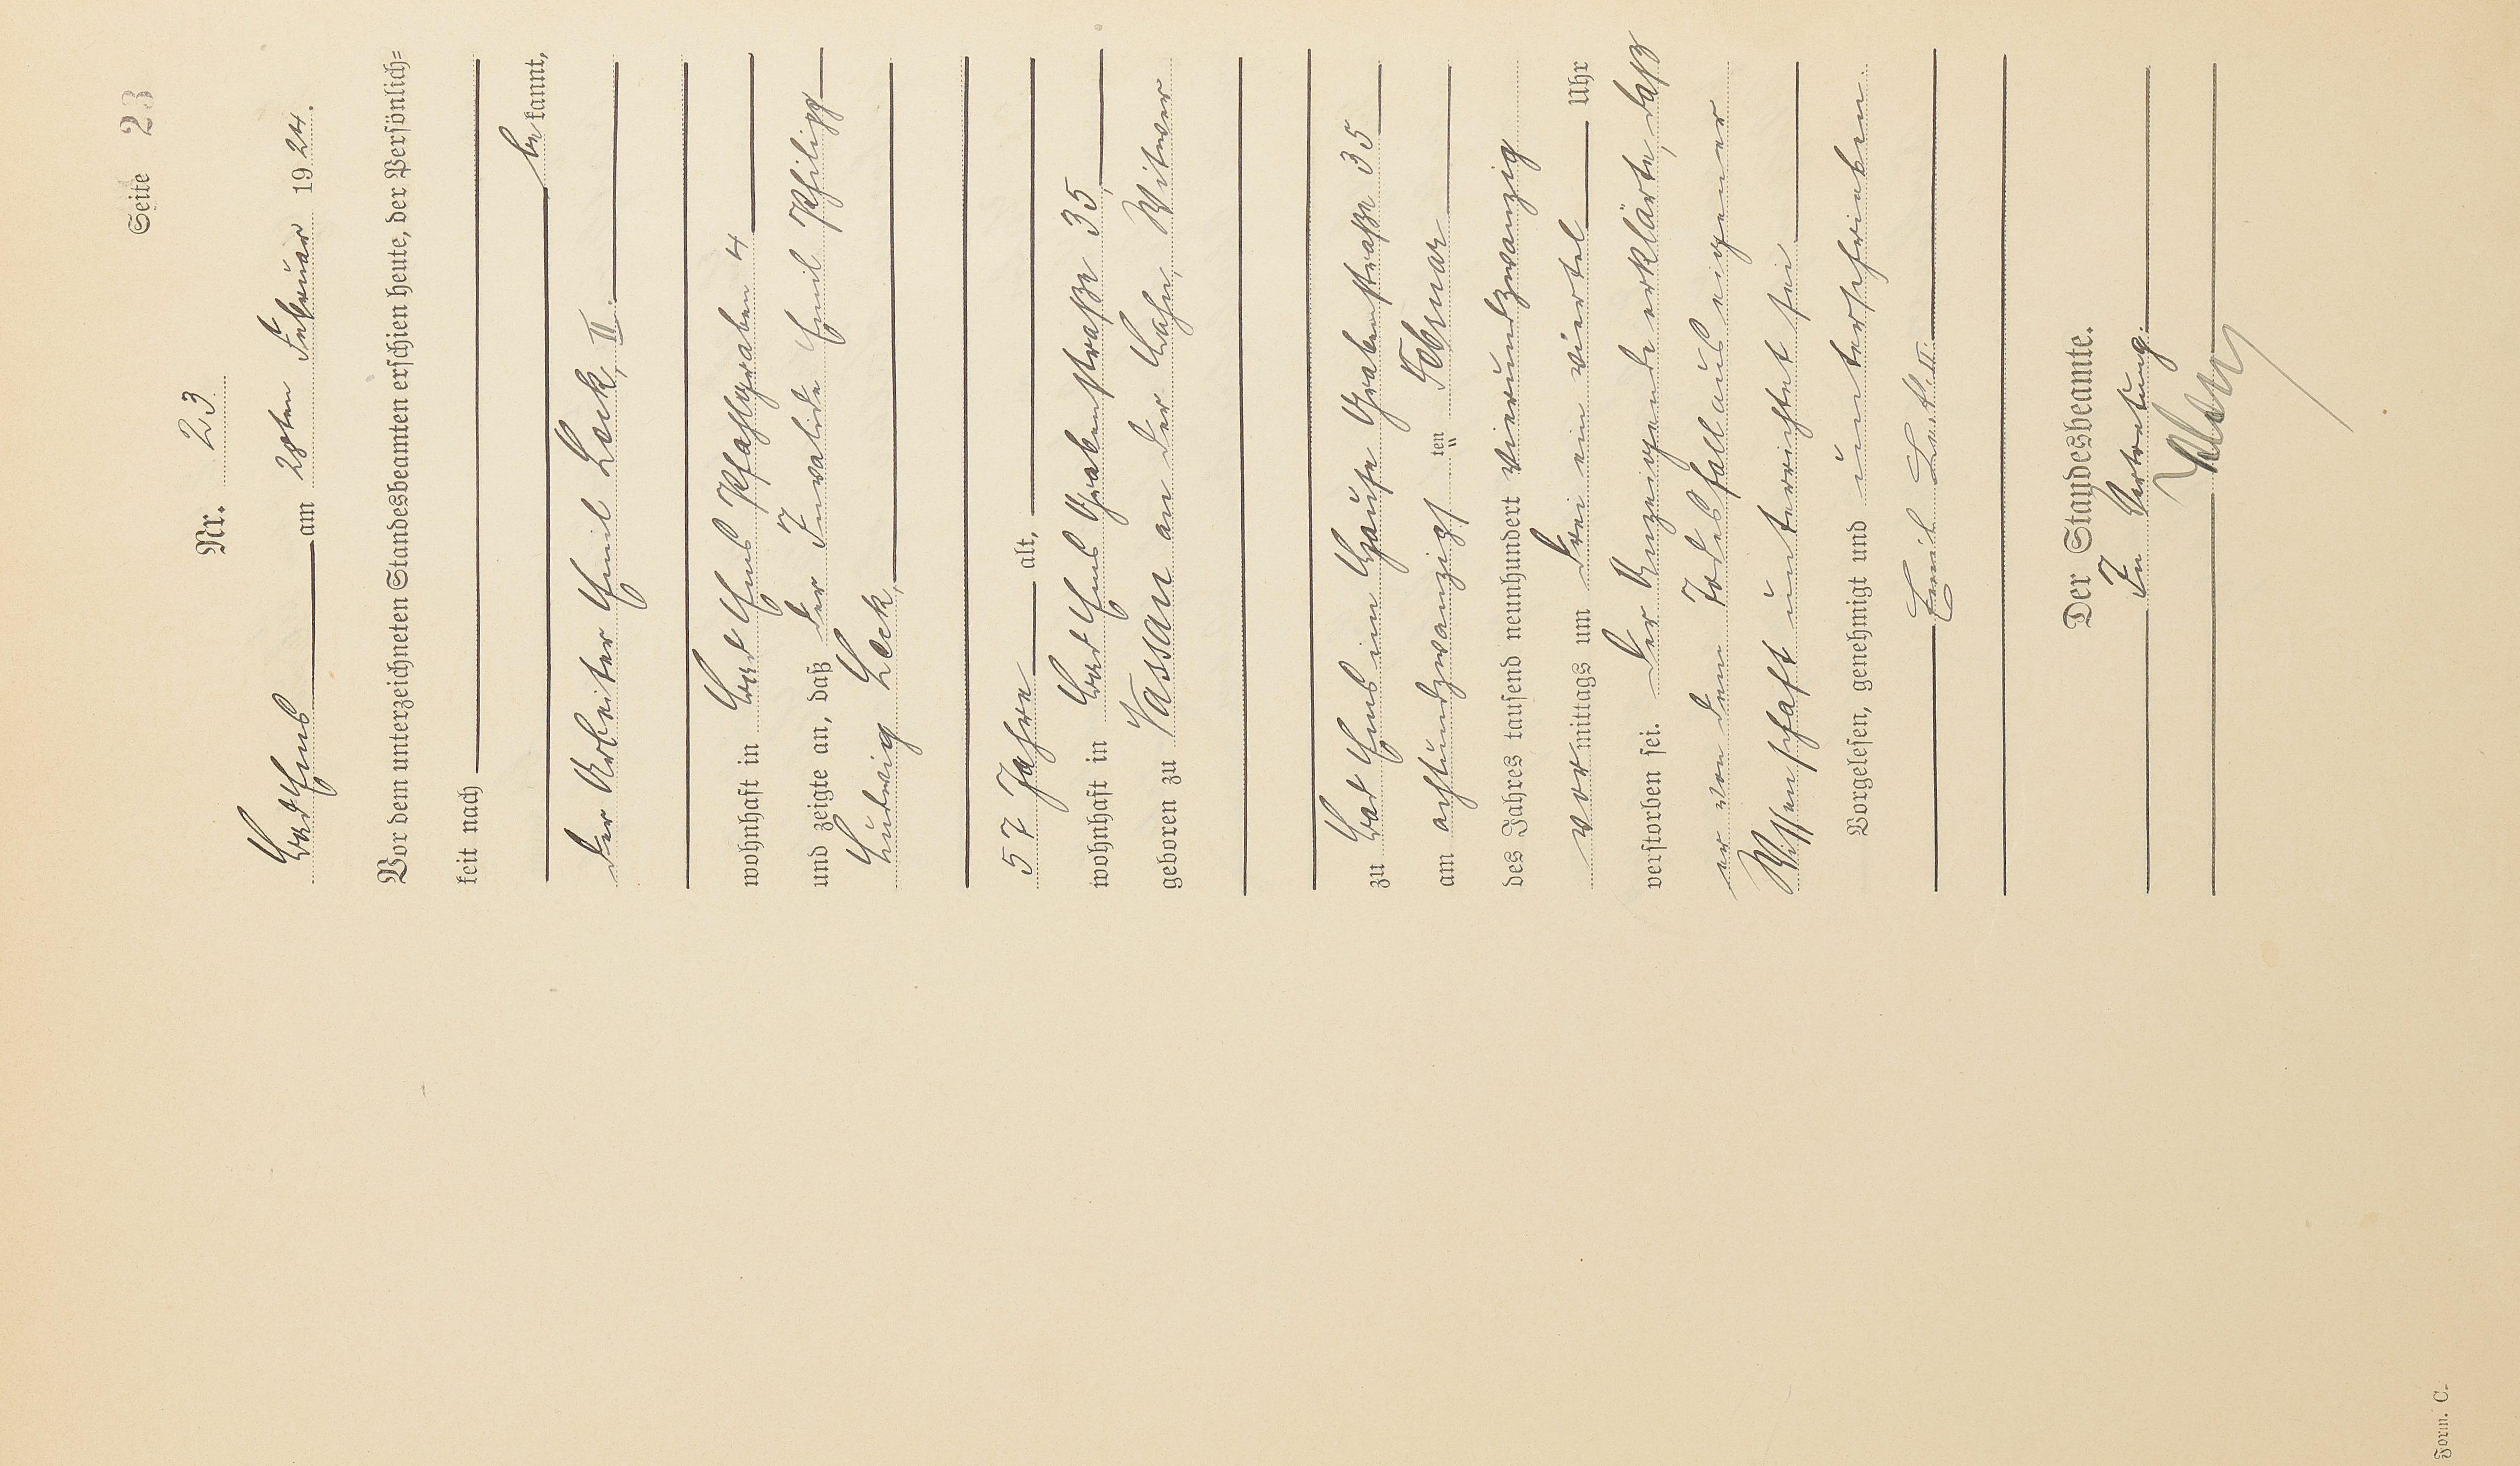 Seite 23
Nr. 23
Bad Ems am 28ten Februar 1924.
Vor dem unterzeichneten Standesbeamten erschien heute, der Persönlich=
keit nach
be kannt,
der Arbeiter Emil Lock, II.
wohnhaft in Bad Ems Pfahlgraben 4
und zeigte an, daß der Invalide Emil Philipp
Ludwig Lock,
57 Jahre alt,
wohnhaft in Bad Ems Grabenstraße 35,
geboren zu Nassau an der Lahn, Witwer
zu Bad Ems im Hause Grabenstraße 35
am achtundzwanzigs ten Februar
des Jahres tausend neunhundert vierundzwanzig
vor mittags um drei ein viertel Uhr
verstorben sei. Der Anzeigende erklärte, daß
er von dem Todesfall aus eigener
Wissenschaft unterrichtet sei.
Vorgelesen, genehmigt und unterschrieben.
Emil Lock. II.
Der Standesbeamte.
In Vertretung.
Form. C.